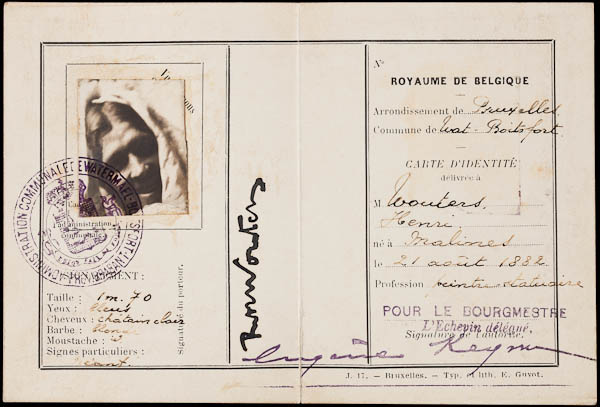 ADMINISTRATION COMMUNALE DE WATERMAEL-BOITSFORT
Taille : 1m.70
Yeux :
Cheveux : châtain clair
Barbe :
Moustache :
Signes particuliers :
Signature du porteur.
N°
ROYAUME DE BELGIQUE
Arrondissement de Bruxelles
Commune de Wat-Boitsfort.
CARTE D'IDENTITÉ
délivrée à
M Wouters,
Henri.
né à Malines
le 21 août 1882
Profession peintre statuaire
POUR LE BOURGMESTRE
L'Echevin délégué,
Signature de l'autorité.
Eugène
J. 17. – Bruxelles. – Typ. et lith. E. Guyot.